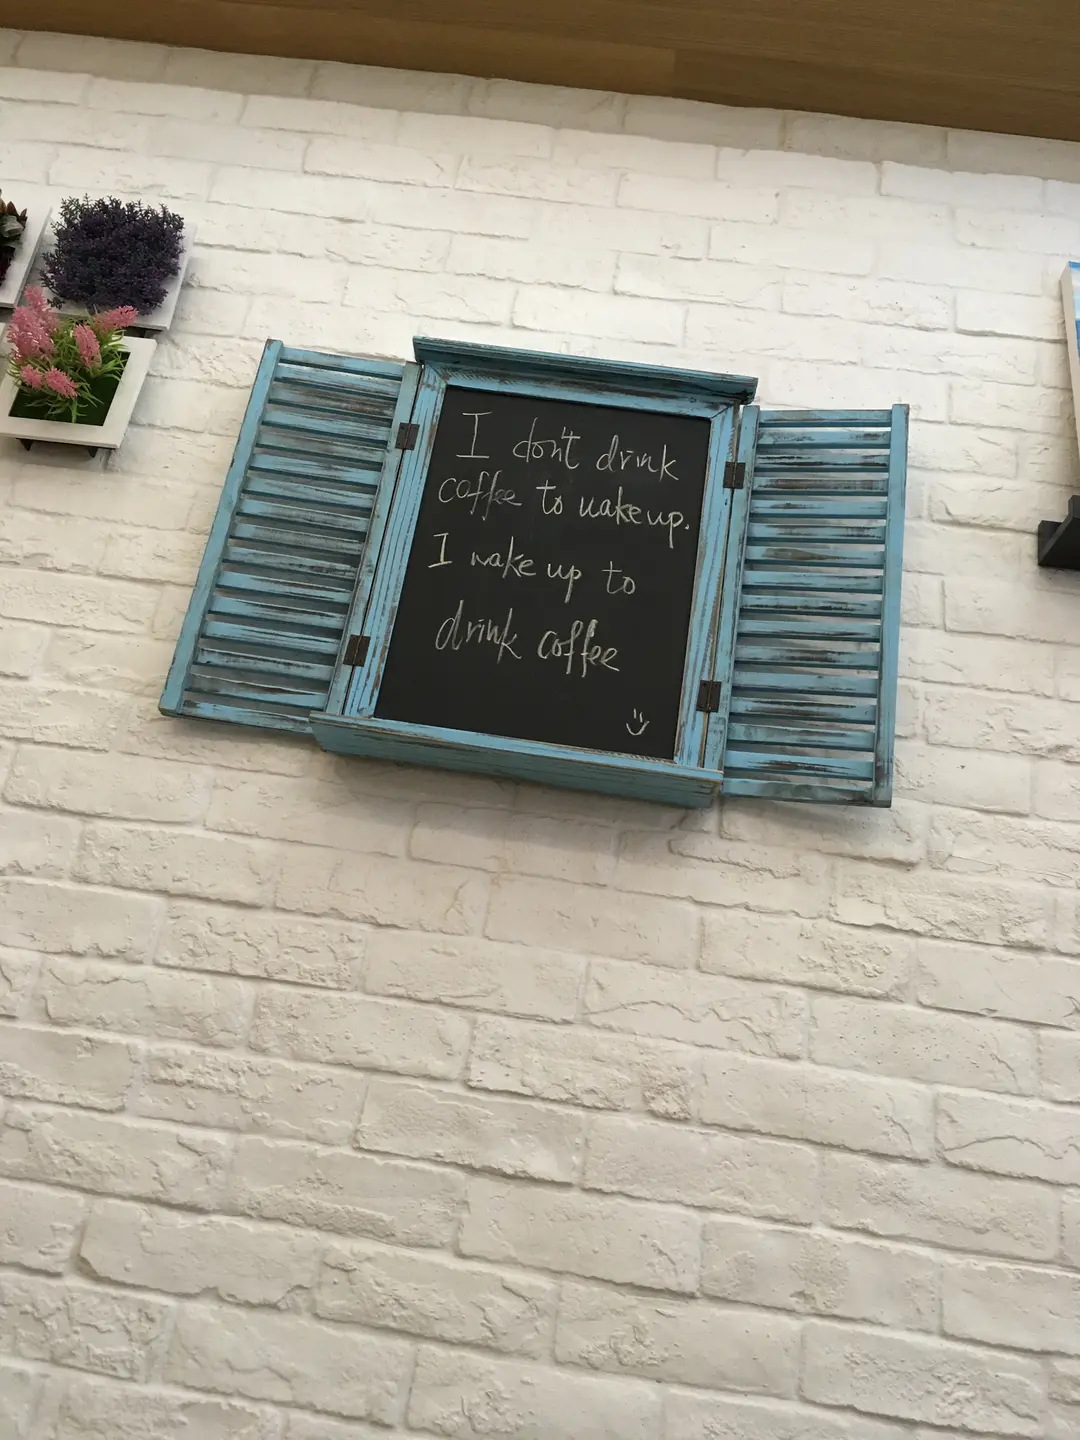 I don't drink
coffee to wake up.
I wake up to
drink coffee